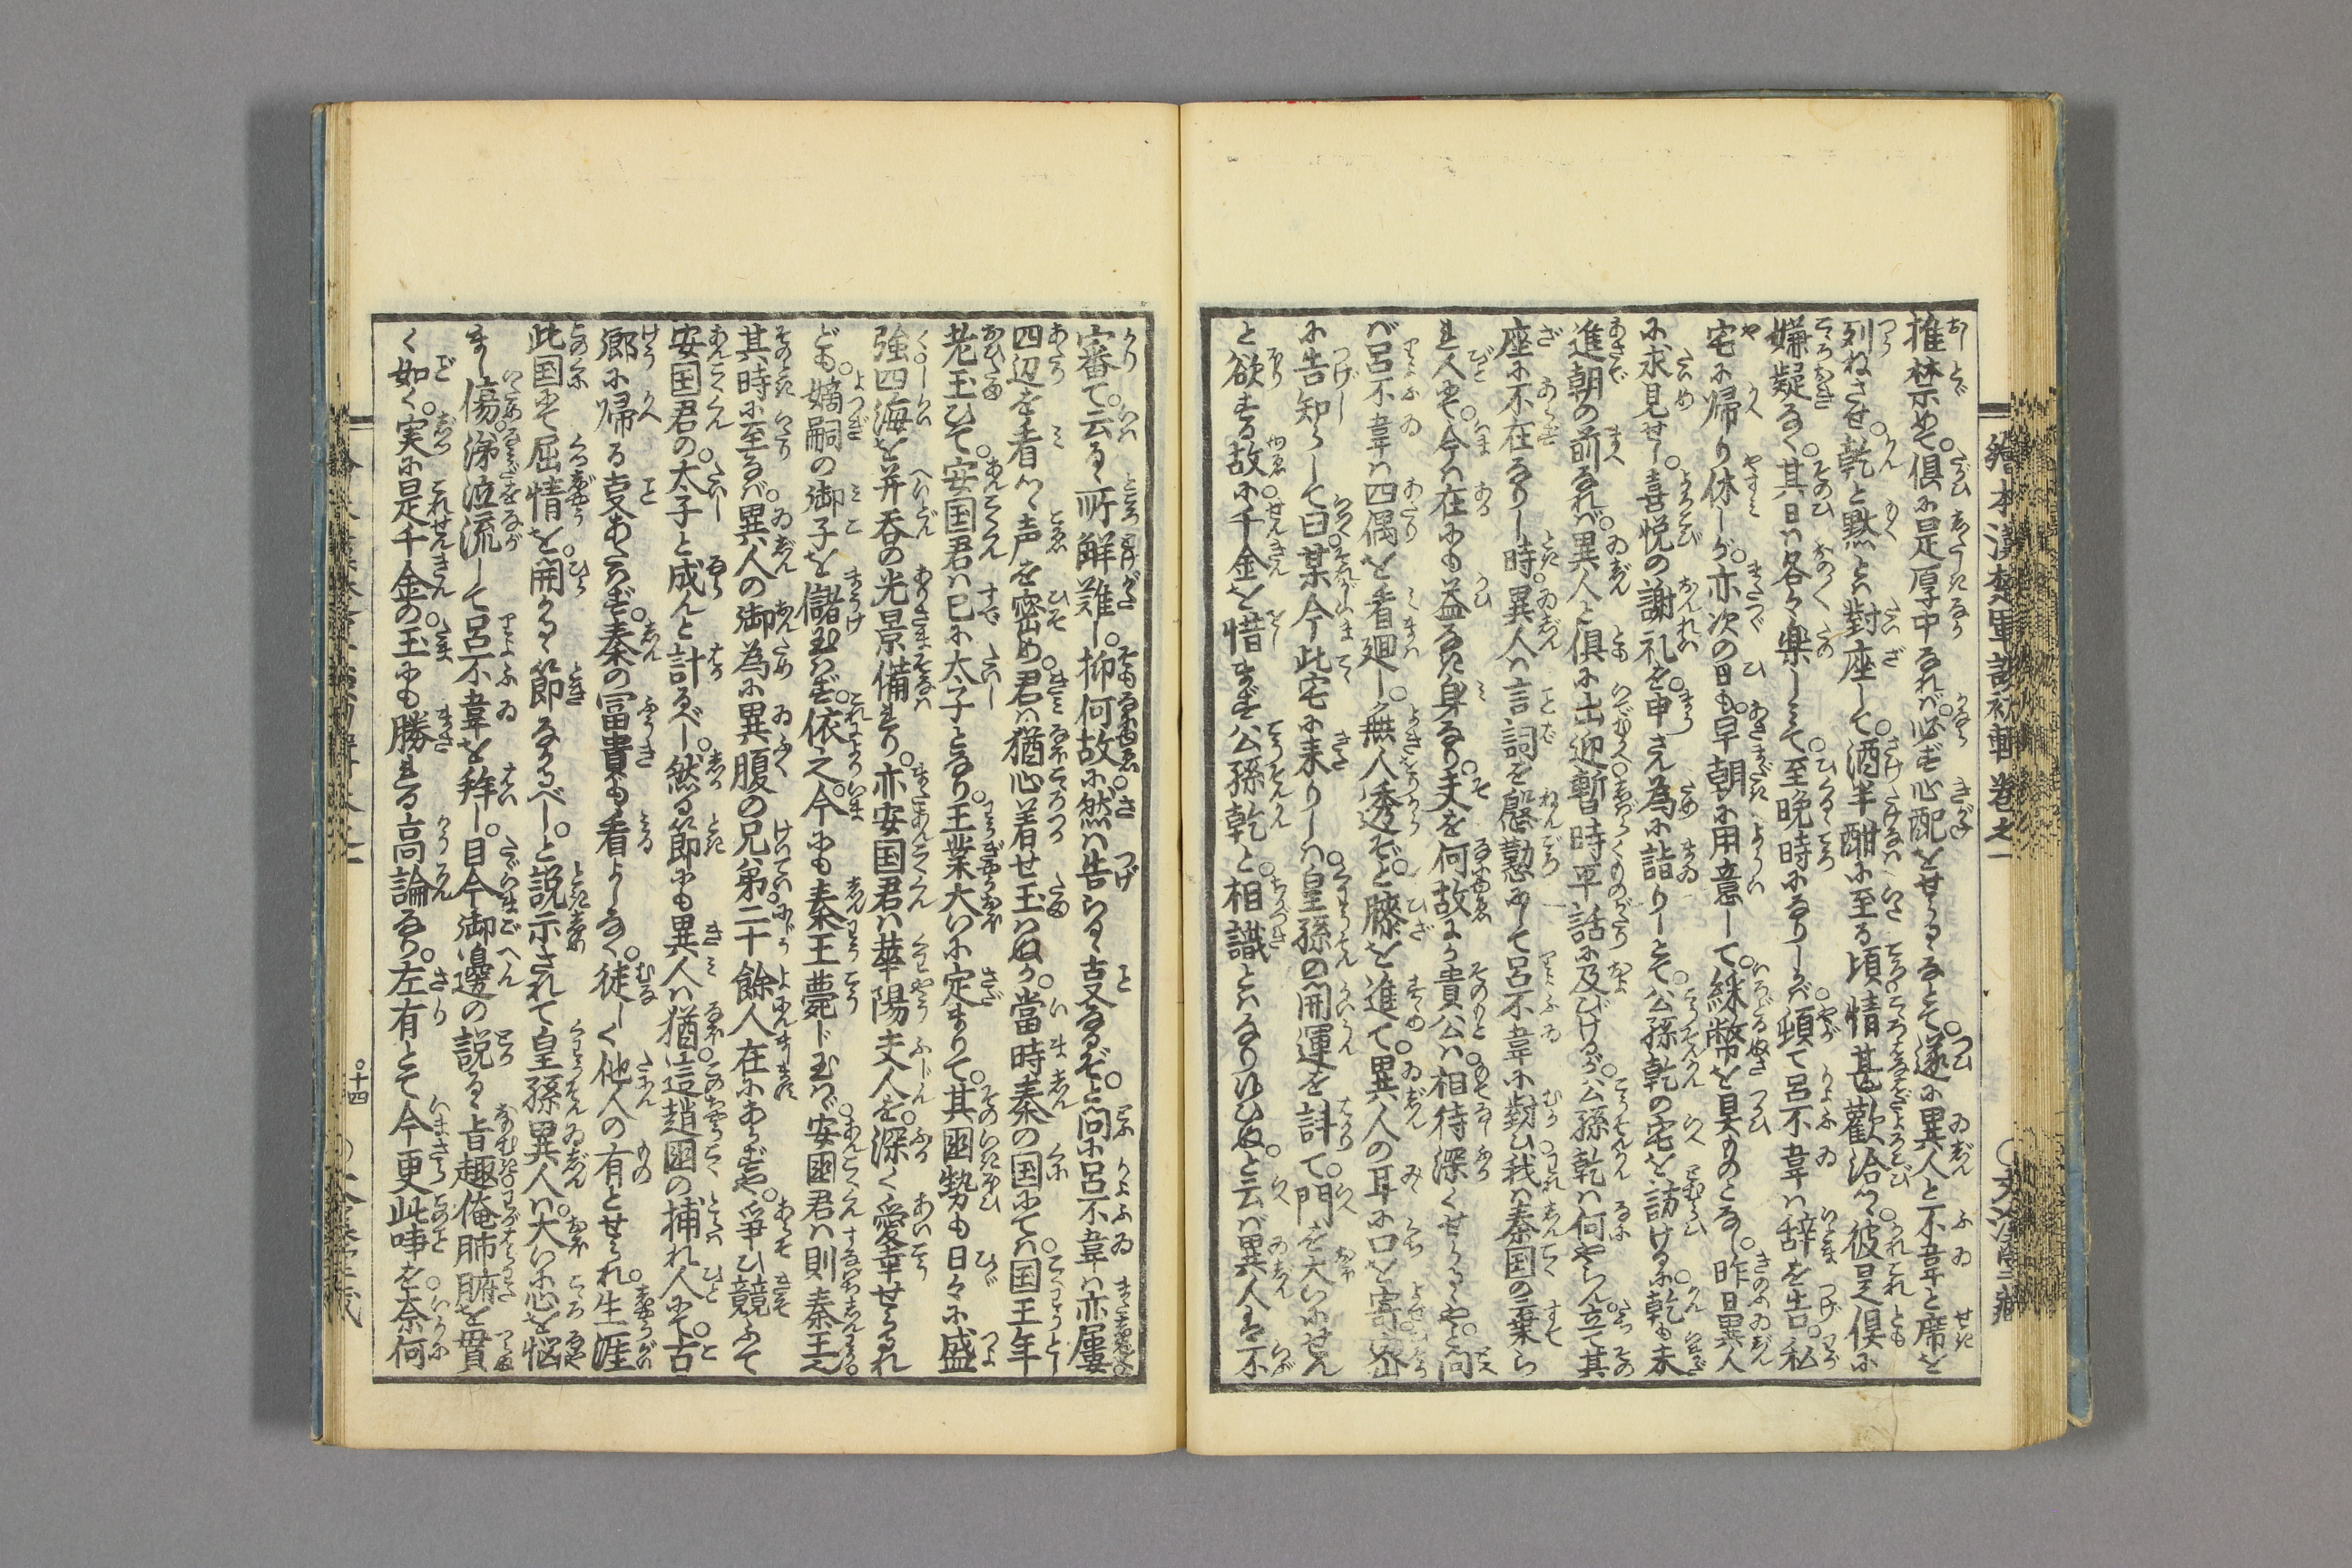 繪本漢楚軍談初輯卷之一
推禁めて。俱に是厚中なれば。必ず心配をせらるゝなとて。遂に異人と不韋と席を
列ねさせ。乾と黙とハ對座して。酒半酣に至る頃。情甚歡洽つ。彼是俱に
嫌疑なく。其日ハ各々樂しミて。至晩時になりしかバ。頓て呂不韋ハ辞を告。私
宅に帰り休しが。亦次の日も。早朝に用意して。綵幣を具ものし。昨日異人
に求見せし。喜悦の謝礼を。申さん為に詣りしとて。公孫乾の宅を訪けるに。乾も未
進朝の前なれば。異人と俱に出迎。暫時平話に及びけるが。公孫乾ハ何やらん立て其
座に不在なりし時。異人ハ言詞を慇懃にして呂不韋に對ひ。我ハ秦国の棄ら
れ人にて。今ハ在にも益なき身なり。夫を何故にか貴公ハ。相待深くせらるゝやと。問
バ呂不韋ハ四偶を看廻し。無人透ぞと。膝を進て。異人の耳に口を寄。密
に告知らして曰。某今此宅に来りしハ。皇孫の開運を計て。門を大いにせん
と欲する故に。千金を惜まず。公孫乾と。相識とハなり候ひぬ。と云バ異人ハ不
審て。云るゝ所解難し。抑何故に。然ハ告らるゝ㕝なるぞと。問に呂不韋ハ亦屢
四辺を看つゝ声を密め。君ハ猶心着せ玉ハぬか。當時秦の国にてハ。国王年
老玉ひて。安国君ハ已に太子となり。王業大いに定まりて。其国勢も日々に盛
強。四海を并呑の光景備れり。亦安国君ハ華陽夫人を。深く愛幸せらるれ
ども。嫡嗣の御子を儲玉ハず。依之。今にも秦王薨じ玉ひバ。安国君ハ則秦王。
其時に至るバ。異人の御為に異腹の兄弟。二十餘人在にあらずや。爭ひ競ふて
安国君の。太子と成んと計るべし。然る節にも異人ハ猶。這趙国の捕れ人にて。古
郷に帰る㕝あたハず。秦の冨貴も看よしなく。徒しく他人の有とせられ。生涯
此国にて屈情を。開かるゝ節なかるべし。と説示されて皇孫異人ハ。大いに心を悩
まし傷。涕泣流して呂不韋を拜し。目今御邊の説るゝ旨趣。俺肺腑を貫
く如く。実に是千金の。玉にも勝れる高論なり。左有とて今更此㕝を。奈何
十四